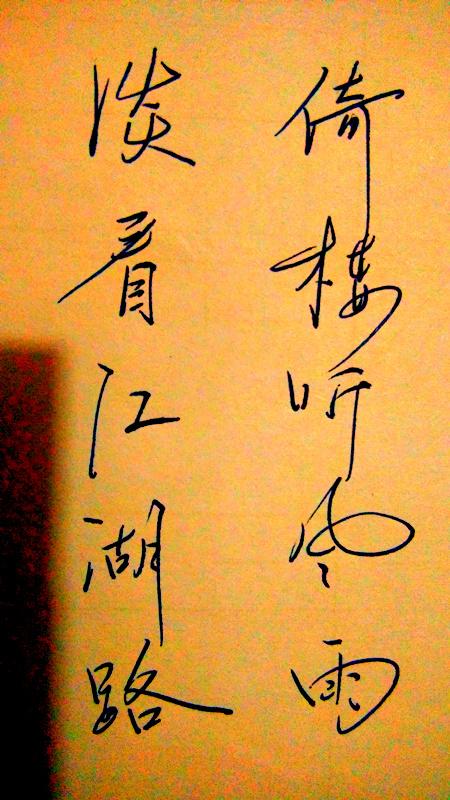 倚楼听风雨
淡看江湖路